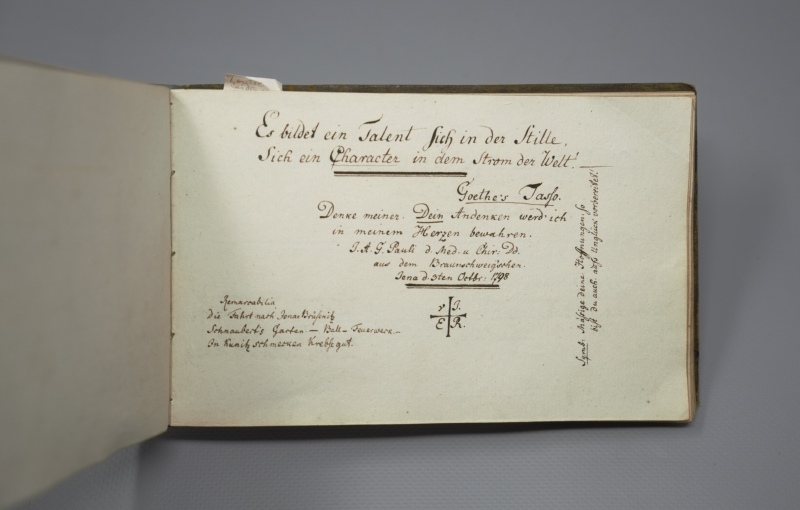 Es bildet ein Talent sich in der Stille,
Sich ein Character in dem Strom der Welt!
Goethe's Tasso.
Denke meiner. Dein Andenken werd' ich
in meinem Herzen bewahren.
J. A. G. Pauli d. Med. u Chir: Dd.
aus dem Braunschweig'schen.
Jena d. 3ten Octbr: 1798
Remarcabilia
Die Fahrt nach
Schnaubert's Garten — Ball — Feuerwerk —
In Kunitz schmecken Krebse gut.
v J.
E R.
Symb: Mässige deine Hoffnungen, so
bist du auch aufs Unglück vorbereitet!